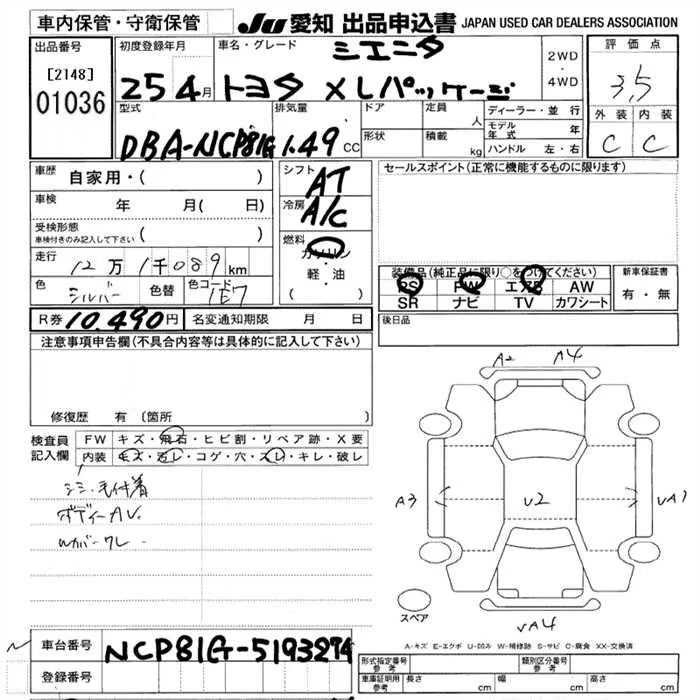 車内保管・守衛保管 JU 愛知 出品申込書 JAPAN USED CAR DEALERS ASSOCIATION
出品番号 初度登録年月 車名・グレード シエニタ 2WD・4WD 評価点
[2148]
01036 25 4月 トヨタ XLパッケージ 3,5
型式 排気量 ドア 定員 人 ディーラー・並行 外装 内装
DBA-NCP81G 1.49 CC 形状 積載 kg モデル年式 年 C C
ハンドル 左・右
車歴 自家用・( ) シフト AT セールスポイント(正常に機能するものに限ります)
車検 年 月( 日) 冷房 A/C
受検形態
車検付きのみ記入して下さい ( ) 燃料 ガソリン・軽・油 ( )
走行 12万1千089km 装備品(純正品に限り○をつけてください) 新車保証書
色 シルバー 色替 色コード 1E7 PS PW エアB AW 有・無
SR ナビ TV カワシート
R券 10,490円 名変通知期限 月 日 後日品
注意事項申告欄(不具合内容等は具体的に記入して下さい)
修復歴 有(箇所
検査員記入欄 FW キズ・飛石・ヒビ割・リペア跡・X要
内装 キズ・汚レ・コゲ・穴・スレ・キレ・破レ
シミ・毛付着
A2 A4
A3 U2
スペア
A-キズ E-エクボ U-凹み W-補修跡 S-サビ C-腐食 XX-交換済
車台番号 NCP81G-5193274
登録番号
形式指定番号 参考 類別区分番号 参考
車庫証明用 参考 長さ cm 幅 cm 高さ cm